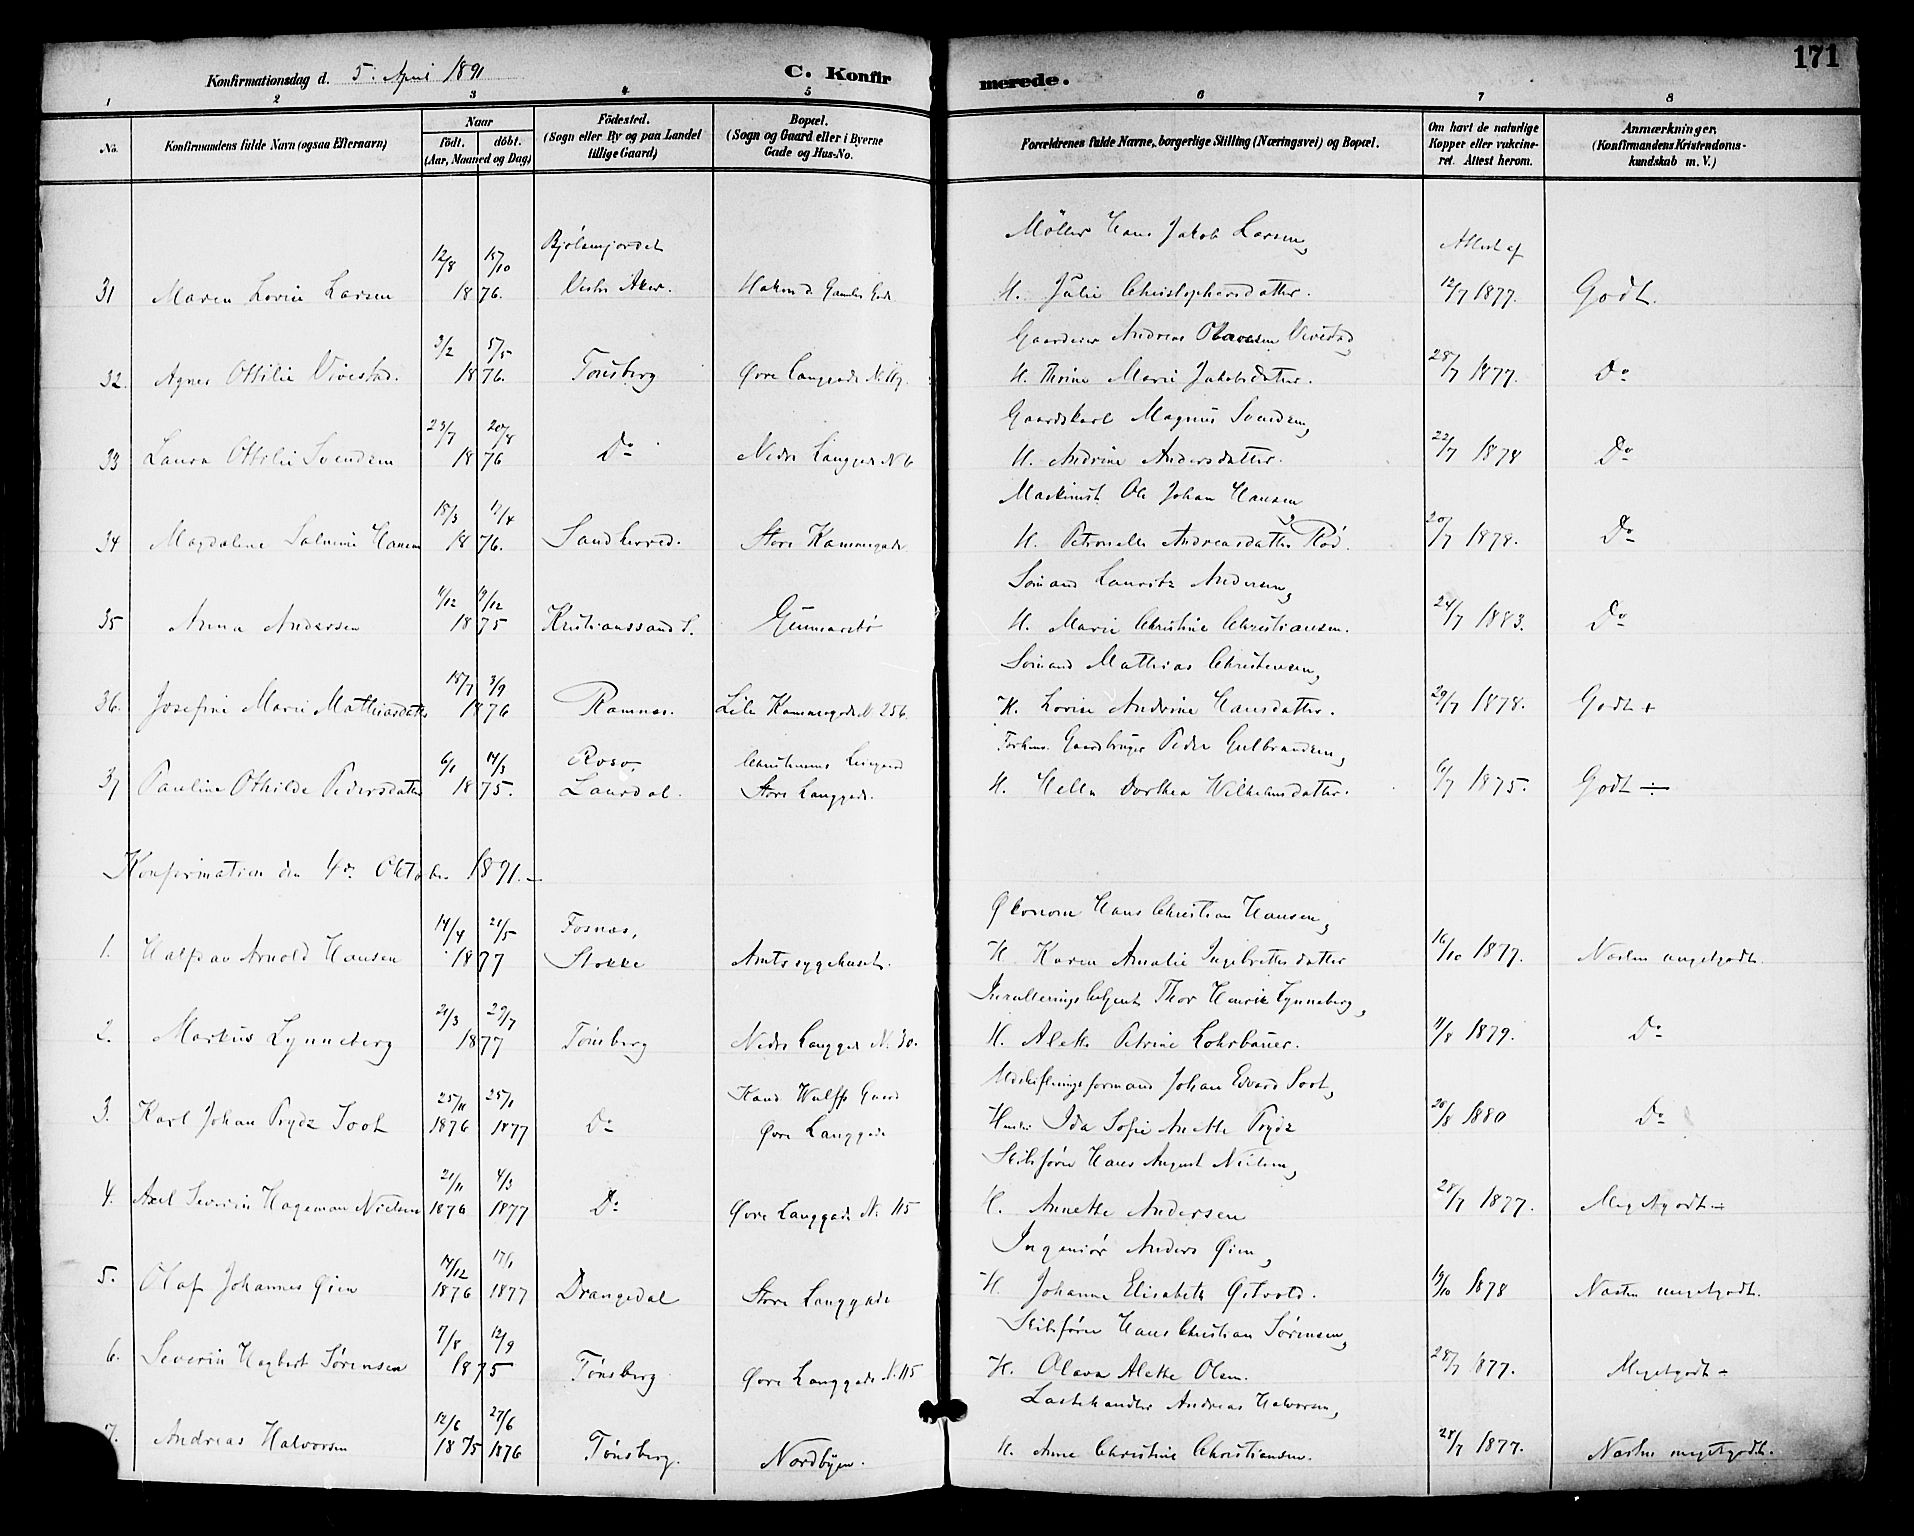 171
Konfirmationsdag d. 5. April 1891 C. Konfirmerede.
1 2 3 4 5 6 7 8
No. Konfirmandens fulde Navn (ogsaa Efternavn) Naar født. døbt. (Aar, Maaned og Dag) Fødested. (Sogn eller By og paa Landet tillige Gaard) Bopæl. (Sogn og Gaard eller i Byerne Gade og Hus-No. Forældrenes fulde Navne, borgerlige Stilling (Næringsvei) og Bopæl. Om havt de naturlige Kopper eller vakcineret. Attest herom. Anmærkninger. (Konfirmandens Kristendomskundskab m. V.)
12/8 15/10 Bjølsenjordet Møller Hans Jakob Larsen, Attest af
31 Maren Lovise Larsen 1876. Vestre Aker. Hakon d. Gamles Gade H. Julie Christophersdatter. 12/7 1877. Godt.
3/2 5/5 Gaardeier Andreas Olavesen Vivestad,
32. Agnes Ottilie Vivestad. 1876. Tønsberg Øvre Langgade N. 117. H. Thrine Marie Jakobsdatter. 28/7 1877. Do
23/7 20/8 Gaardskarl Magnus Svendsen,
33 Laura Ottilie Svendsen 1876 Do Nedre Langgade N 6 H. Andrine Andersdatter. 22/7 1878 Do
15/3 17/4 Maskinist Ole Johan Hansen
34 Magdalene Salmine Hansen 1876. Sandherred. Store Kammegade H. Petronelle Andreasdatter Rød. 20/7 1878. Do
11/12 19/12 Sømand Lauritz Andersen,
35 Anna Andersen 1875 Kristianssand S. Gunnarsbø H. Marie Christine Christiansen. 24/7 1883. Do
15/7 3/9 Sømand Mathias Christensen,
36. Josefine Marie Mathiasdatter 1876 Ramnæs. Lille Kammegade N 256. H. Lovise Andrine Hansdatter. 29/7 1878. Godt +
6/1 14/3 Forhenv. Gaardbruger Peder Gulbrandsen,
37 Pauline Othilde Pedersdatter 1875. Laurdal. Store Langgade. H. Helle Dorthea Wilhelmsdatter. 6/7 1875. Godt ÷
Konfirmation den 4de Oktober 1891.—
14/4 21/5 Fosnæs, Økonom Hans Christian Hansen,
1. Halfdan Arnold Hansen 1877 Stokke Amtssygehuset. H Karen Amalie Ingebrettsdatter 16/10 1877. Næsten megetgodt.
21/3 29/7 Thor Henrik Lynneberg,
2. Markus Lynneberg 1877 Tønsberg Nedre Langgade N. 30. H. Alette Petrine Lohrbauer. 11/8 1879. Do
25/11 25/1 Kand Wulffs Gaard Udskiftningsformand Johan Edvard Soot,
3. Karl Johan Prydz Soot 1876 1877 Do Øvre Langgade Hustru Ida Sofie Anette Prydz 20/8 1880 Do
21/11 4/3 Skibsfører Hans August Nielsen,
4. Axel Severin Hageman Nielsen 1876 1877 Do Øvre Langgade N. 115 H. Annette Andersen 28/7 1877. Megetgodt ÷
14/12 17/1 Ingeniør Anders Øien,
5. Olaf Johannes Øien 1876 1877 Drangedal Store Langgade H. Johanne Elisabeth Østvold. 19/10 1878 Næsten megetgodt.
7/8 12/9 Skibsfører Hans Christian Sørensen,
6. Severin Hagbert Sørensen 1875 Tønsberg Øvre Langgade N. 115 H. Olava Alette Olsen. 28/7 1877. Megetgodt ÷
12/6 27/6 Lastehandler Andreas Halvorsen,
7. Andreas Halvorsen 1875 1876 Tønsberg. Nordbyen. H. Anne Christine Christiansen. 28/7 1877. Næsten megetgodt.